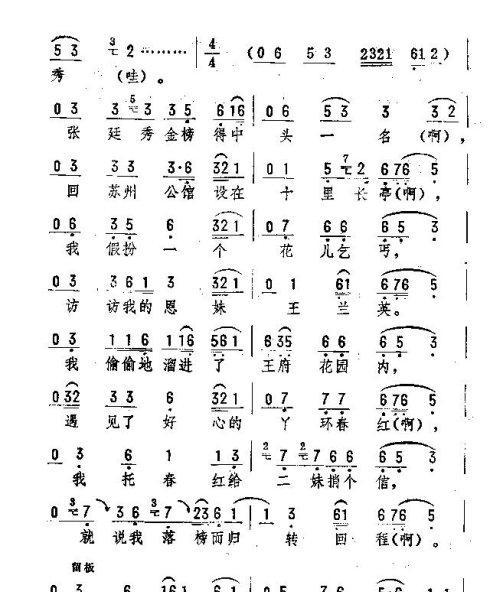 5 3 3 2 ……… 4/4 (0 6 5 3 2321 612)
秀 (哇)。
0 3 5 3 3 3 5 6 1 6 0 6 5 3 3 3 2
张 廷 秀 金 榜 得 中 头 一 名 (啊)，
0 3 3 3 3·6 3 2 1 0 1 5 7 2 6 7 6 5
回 苏州 公馆 设在 十 里 长 亭(啊)，
0 6 3 5 6 3 2 1 0 7 6 6 6 5 3
我 假扮 一 个 花 儿乞 丐，
0 3 3 6 1 3 3 2 1 0 1 6 1 6 7 6 5
访 访我的 恩 妹 王 兰 英。
0 3 1 1 6 1 1 6 5 6 1 6 3 5 6 6 6 5 3
我 偷偷地 溜进 了 王府 花园 内，
0 3 2 3 2 3 3 2 1 0 7 7 7 6 7 6 5
遇 见了 好 心的 丫 环春 红(啊)，
0 3 6 1 1 3 2 7 2 7 6 6 6 5 1
我 托 春 红给 二 妹捎个 信，
0 3 7 3 6 3 7 2 3 6 1 1 3 6 1 6 7 6 5
就 说我 落 榜而归 转 回 程(啊)。
留板